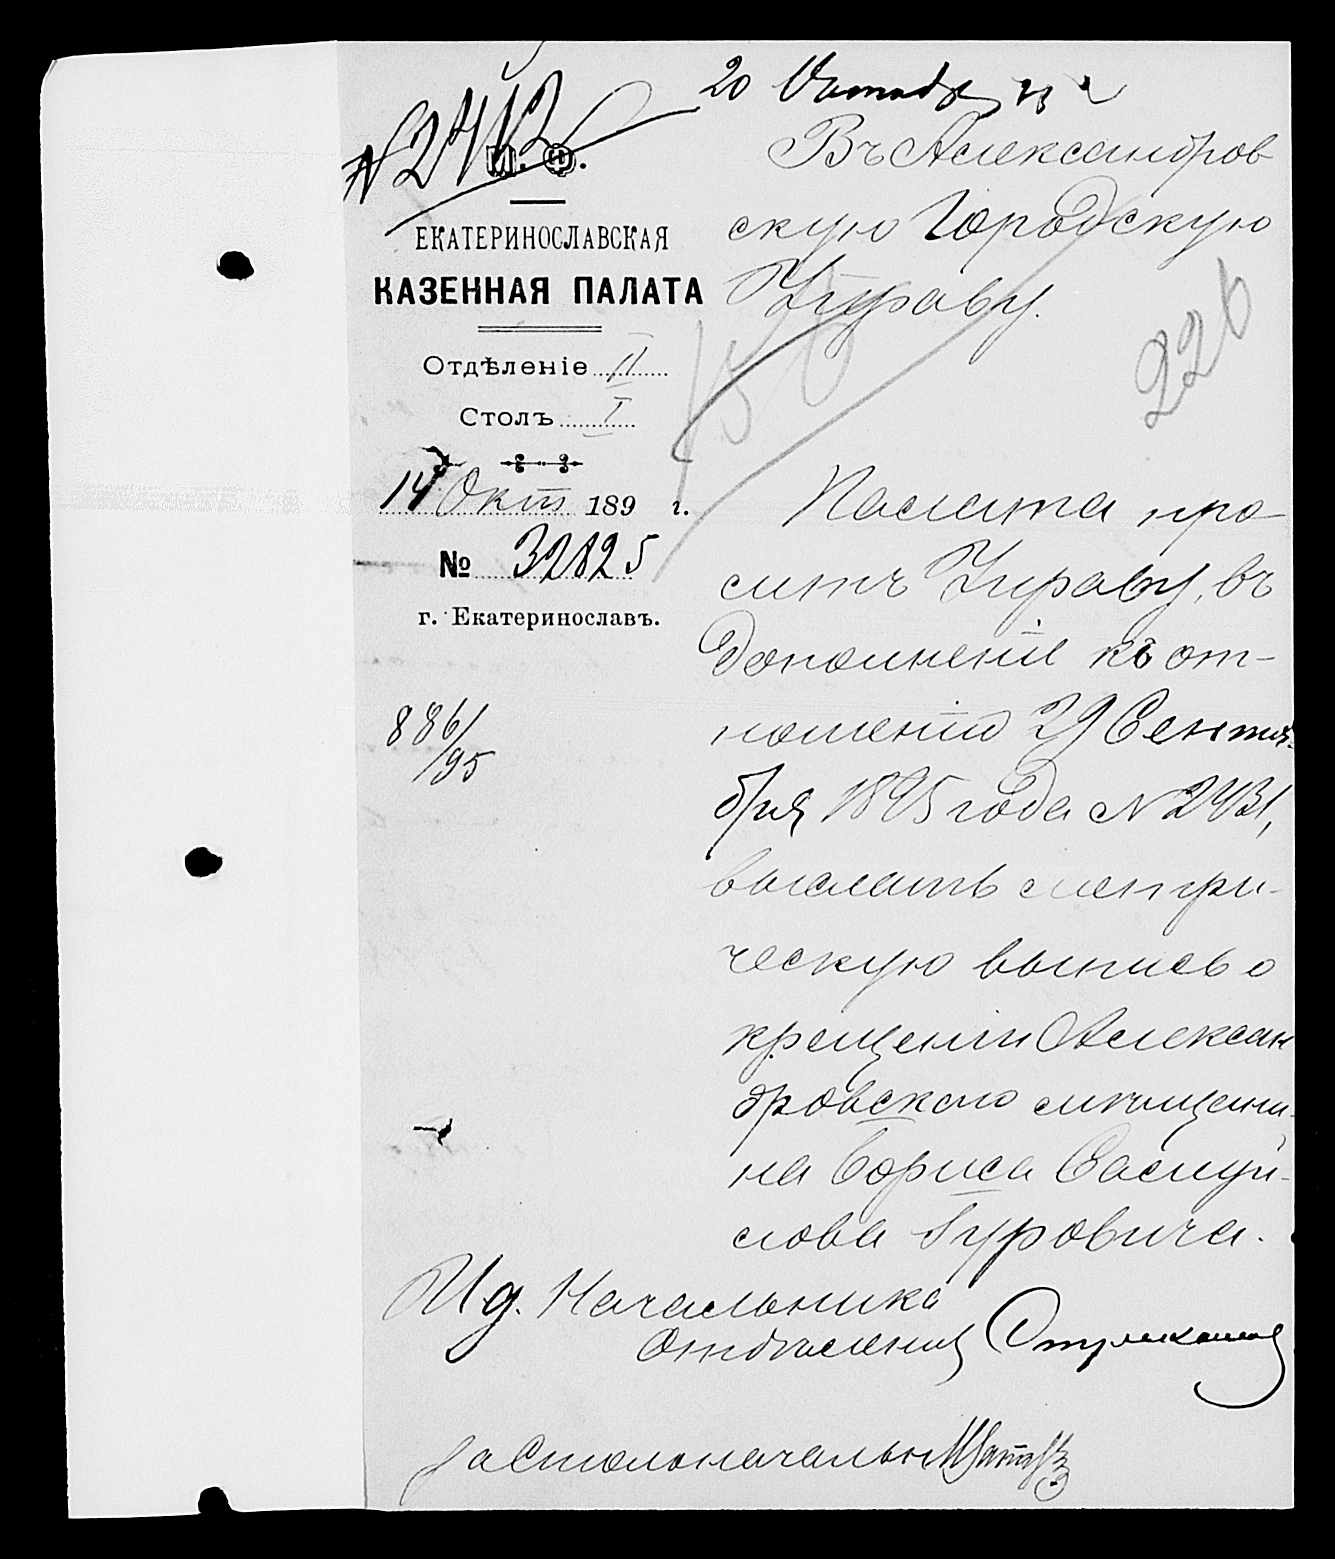 20 Октября
№ 2412
М. Ф.
ЕКАТЕРИНОСЛАВСКАЯ
КАЗЕННАЯ ПАЛАТА
Отдѣленіе II
Столъ I
14 Окт 189 г.
№ 32825
г. Екатеринославъ.
886/95
Въ Александров
скую Городскую
Управу.
226
Палата про-
ситъ Управу, въ
дополненіе къ от-
ношенію 29 Сентя-
бря 1895 года № 2431,
выслать метри-
ческую выпись о
крещеніи Алексан
дровского мѣщани-
на Бориса Саснуй-
лова Гуровича.
И.д. Начальника
Отдѣленія
За Столоначальн